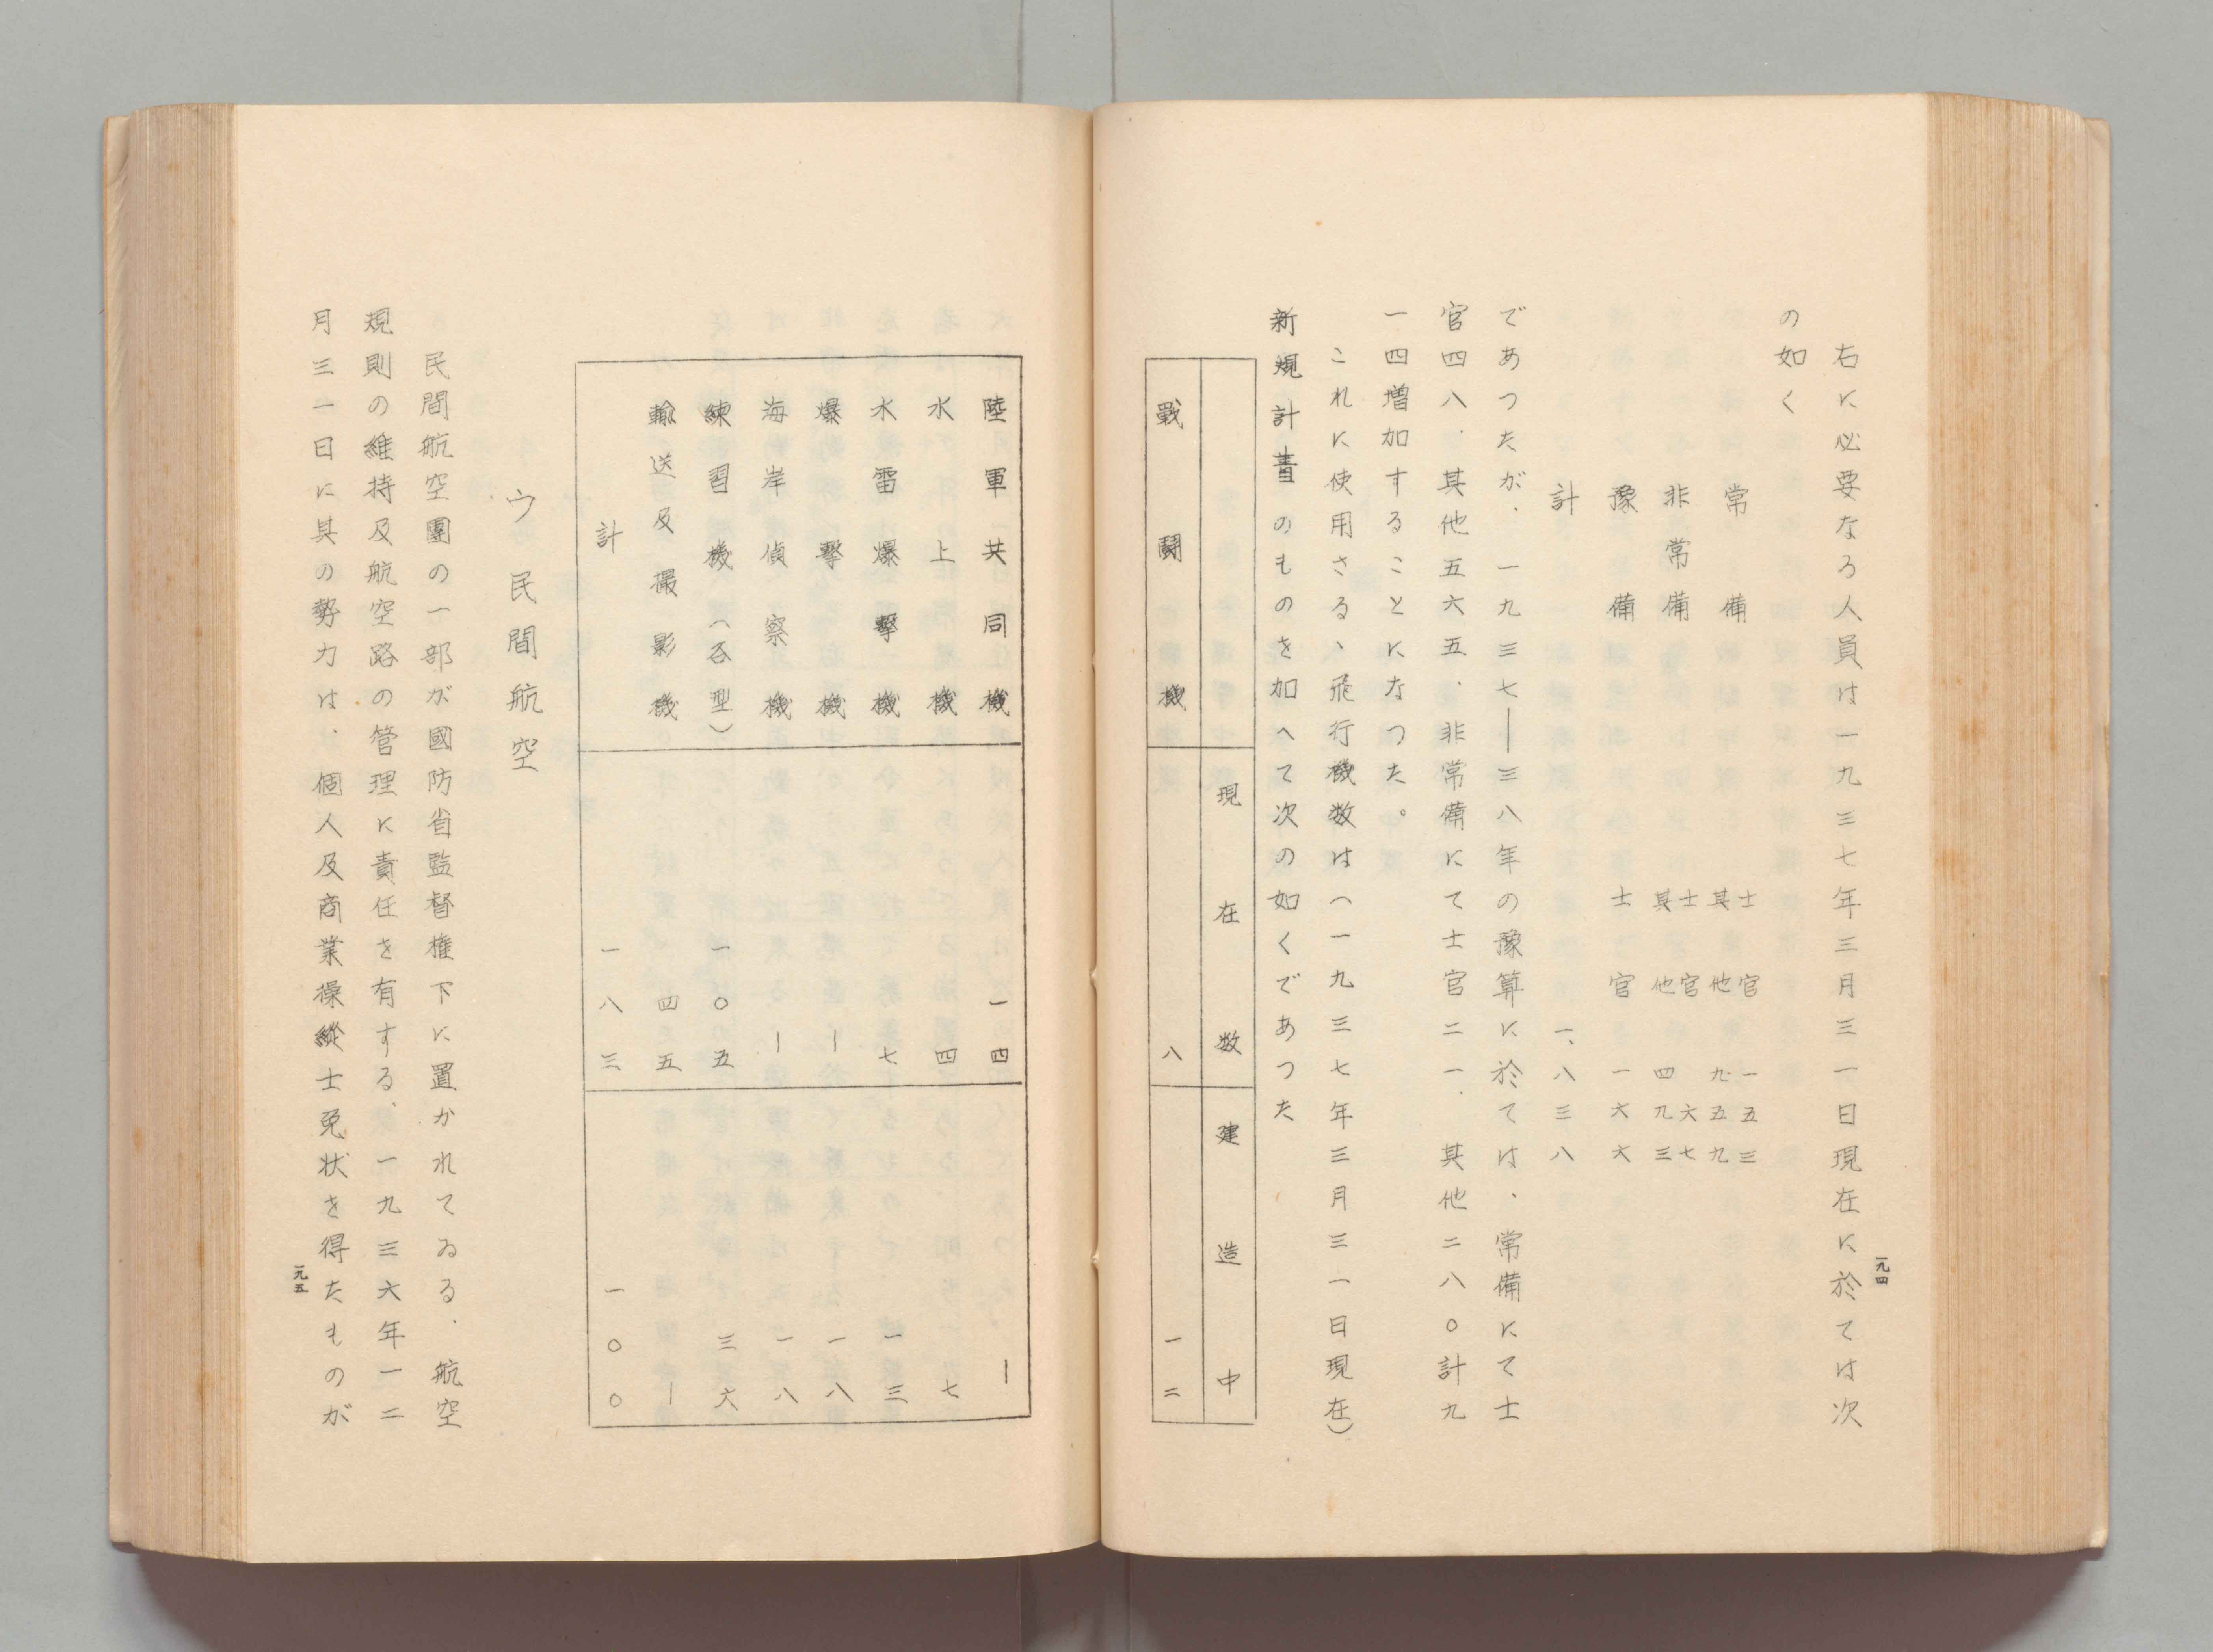 右に必要なる人員は一九三七年三月三一日現在に於ては次
の如く
常備 士官 一五三
其他 九五九
非常備 士官 六七
其他 四九三
豫備 士官 一六六
計 一、八三八
であつたが、一九三七―三八年の豫算に於ては、常備にて士
官四八、其他五六五、非常備にて士官二一、其他二八〇計九
一四増加することになつた。
これに使用さるゝ飛行機数は（一九三七年三月三一日現在）
新規計畫のものを加へて次の如くであつた
現在数 建造中
戰鬪機 八 一二
一九四
陸軍共同機 一四 ―
水上機 四 七
水雷爆擊機 七 一三
爆擊機 ― 一八
海岸偵察機 ― 一八
練習機（各型） 一〇五 三六
輸送及撮影機 四五 ―
計 一八三 一〇〇
ウ 民間航空
民間航空團の一部が國防省監督権下に置かれてゐる、航空
規則の維持及航空路の管理に責任を有する、一九三六年一二
月三一日に其の勢力は、個人及商業操縱士免状を得たものが
一九五